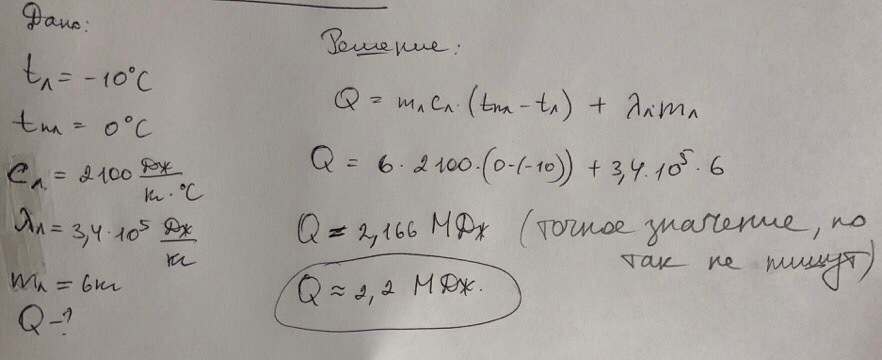 Дано:
tл = -10°C
tпл = 0°C
cл = 2100 Дж/кг·°C
λл = 3,4·10⁵ Дж/кг
mл = 6кг
Q-?
Решение:
Q = mлcл·(tпл - tл) + λлmл
Q = 6·2100·(0-(-10)) + 3,4·10⁵·6
Q = 2,166 МДж (точное значение, но
так не пишут)
Q ≈ 2,2 МДж.